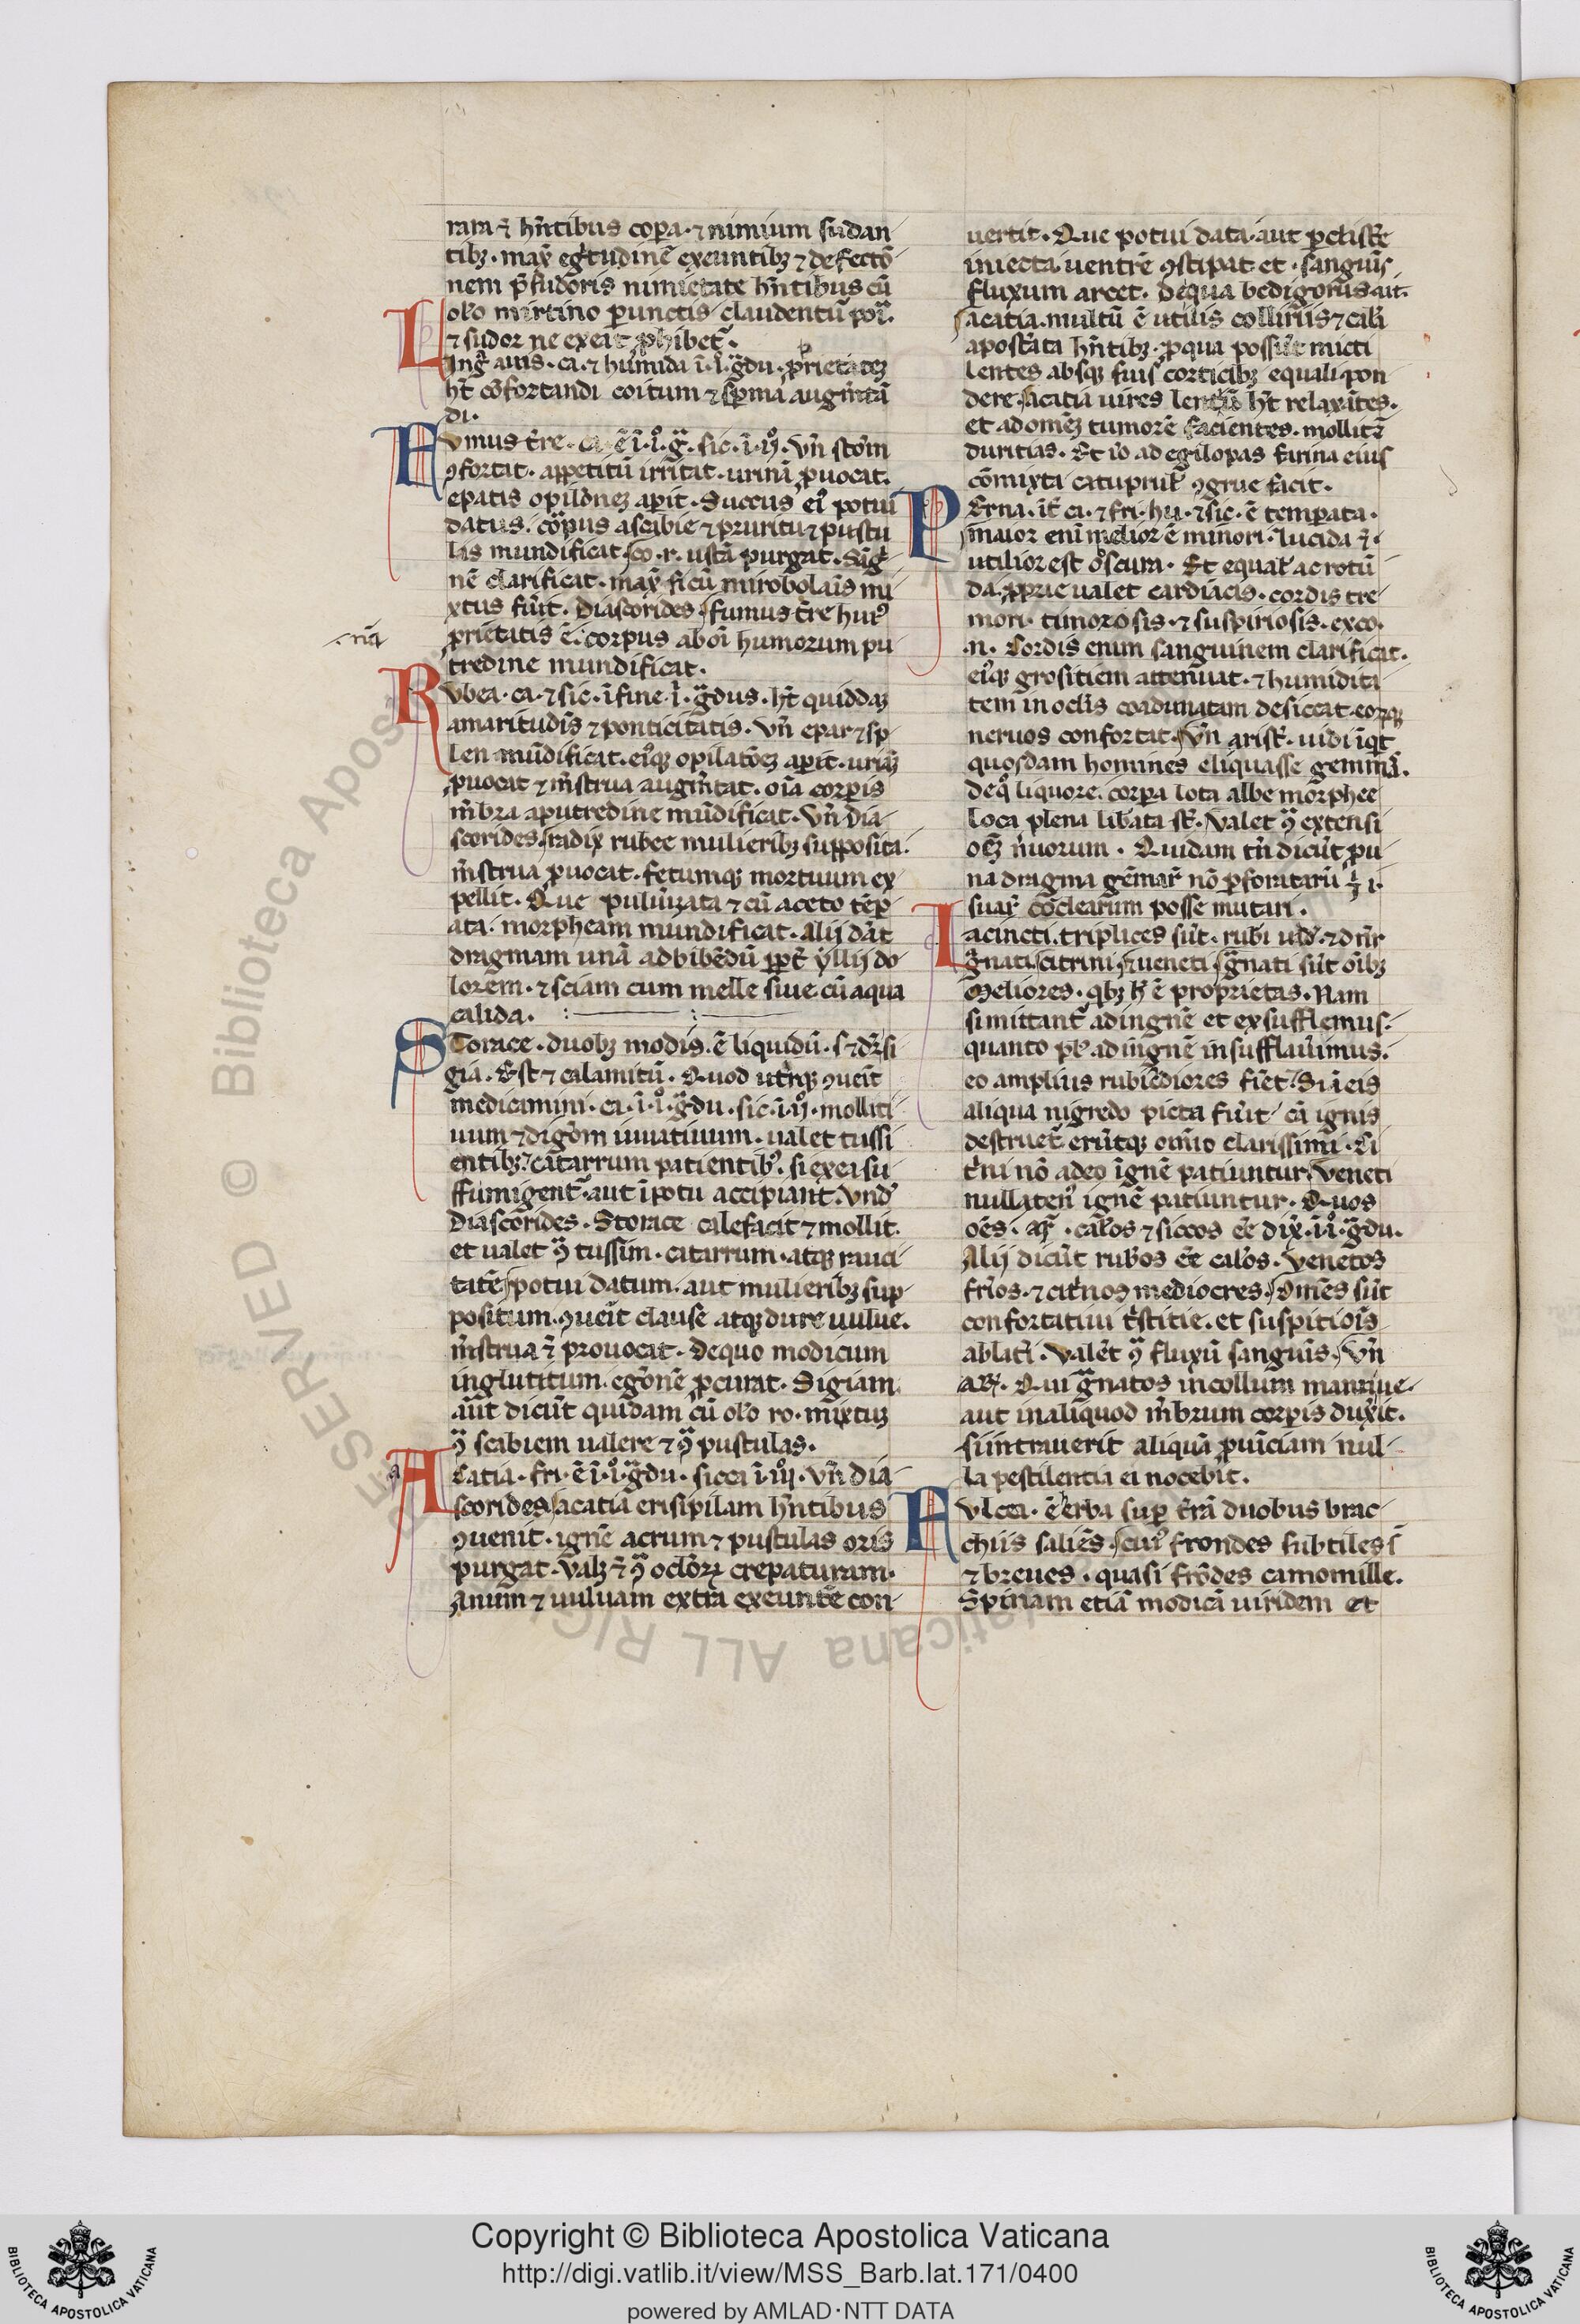 rara ⁊ hñtibus corpa · ⁊ nimium sudan
tibꝫ · max̃ egͥtudinẽ exeuntibꝫ ⁊ defectõ
nem p̃ sudoris nimietate hñtibus cũ
oło mirtino ꝑunctis claudentur̃ pori
⁊ sudor ne exeat ꝓhibet̃ ·
Lingͣ auis · ca · ⁊ humida ĩ · i° · gͣdu · ꝓprietatẽ
hñt cõfortandi coitum ⁊ sperma augmẽtã
di ·
Fumus t̃re · ca · ẽ ĩ · i° · gͣ · sic · ĩ · ij° · Vñ stom̃
ꝯfortat · appetitũ irritat · urinã ꝓuocat ·
epatis opilõnẽ aꝑit · Succus eiꝰ potui
datus · corpus a scabie ⁊ pruritu ⁊ pustu
lis mundificat · co · r · ustã purgat · Sãgͥ
nẽ clarificat · max̃ si cũ mirobolanis mi
xtus fuit̃ · Diascorides · fumus t̃re huiꝰ
ꝓprietatis ẽ · corpus ab oĩ humorum pu
· nã
tredine mundificat ·
Rubea · ca · ⁊ sic · ĩ fine · i · gͣdus · hñt quiddaꝫ
amaritudĩs ⁊ ponticitatis · Vñ epar ⁊ sp
len mũdificat · eiꝰqꝫ opilatõeꝫ aꝑit · urinã
ꝓuocat ⁊ m̃strua augm̃tat · oĩa corꝑis
m̃bra a putredine mũdificat · Vñ dia
scorides · radix rubee mulieribꝫ supposita ·
m̃strua ꝓuocat · fetumqꝫ mortuum ex
pellit · Que pulũizata ⁊ cũ aceto tẽp
ata · morpheam mundificat · Alij dãt
dragmam unã ad bibẽdũ ꝓpt̃ yllij do
lorem · ⁊ sciam cum melle siue cũ aqua
calida ·
Storace · duobꝫ modis · ẽ liquidũ · ⁊ dr̃ si
gia · Est ⁊ calamitũ · Quod utrũqꝫ ꝯueĩt
medicamini · ca · ĩ · i° · gͣdu · sic · ĩ · ij° · molliti
uum ⁊ digõm iuuatiuum · ualet tussi
entibꝫ · catarrum patientibꝰ · si ex ea su
ffumigent̃ · aut ĩ potu accipiant · Vndꝰ
Diascorides · Storace calefacit ⁊ mollit ·
et ualet ꝯͣ tussim · catarrum · atqꝫ rauci
tatẽ · potui datum · aut mulieribꝫ sup
positum · ꝯueĩt clause atqꝫ dure uulue ·
m̃strua ⁊ prouocat · De quo modicum
inglutitum · egõnẽ ꝓcurat · Sigiam
aũt dicũt quidam cũ oło ro · mixtuꝫ
ꝯͣ scabiem ualere ⁊ ꝯͣ pustulas ·
Acatia · fri · ẽ ĩ · i° · gͣdu · sicca ĩ · iij · Vñ dia
a
scorides · acatia erisipilam hñtibus
ꝯuenit · ignẽ acrum ⁊ pustulas oris
purgat · Valꝫ ⁊ ꝯͣ ocłorꝫ crepaturam ·
Anum ⁊ uuluam extra exeuntẽ con
uertit · Que potui data · aut ꝑ clist̃e
iniecta · uentrẽ ꝯstipat et · sanguĩs
fluxum arcet · De qua bedigorus ait ·
acatia · multũ ẽ utilis colliriis ⁊ calĩ
apost̃ata hñtibꝫ · ꝓ qua possũt micti
lentes absqꝫ suis corticibꝫ equali pon
dere · acatia uires lentiũ hñt relaxãtes ·
et ad omẽꝫ tumorẽ facientes · mollitẽ
duritias · Et iõ ad egilopas farina eius
cõmixta cataprut̃ ꝯgrue facit ·
Perna · it̃ ca · ⁊ fri · hu · ⁊ sic · ẽ temperata ·
maior enĩ melior ẽ minori · lucida ⁊ ·
utilior est oscura · Et equał ac rotũ
da · ꝓprie ualet cardiacis · cordis tre
mori · timorosis · ⁊ suspiriosis · ex co ·
· n · Cordis enim sanguinem clarificat ·
eiꝰqꝫ grositiem attenuat · ⁊ humidita
tem in ocłis coadunatam desiccat · eorqꝫ
neruos confortat · Vñ arist̃ · uidi ĩqͥt
quosdam homines eliquasse gemmã ·
de qͦ liquore · corpa lota albe morphee
loca plena libata st̃ · Valet ꝯͣ extensi
oẽꝫ ñuorum · Quidam tñ dicũt ꝓ u
na dragma gẽmar̃ nõ ꝑforatarũ · i ·
suar̃ coclearum posse mutari ·
Iacincti · triplices sũt · rubi · ⁊ dñr
gͣnati · citrini · ⁊ ueneti · gͣnati sũt oĩbꝫ
meliores · qͥbꝫ hͨ ẽ proprietas · Nam
si mittant̃ ad ignẽ et exsufflemus ·
quanto pł ad ignẽ insufflauimus ·
eo amplius rubicũdiores fiẽt · Si ĩ eis
aliqua nigredo picta fuit̃ · eã ignis
destruet · erũtqꝫ omĩo clarissimi · Ci
t̃ni nõ adeo ignẽ patiuntur · Veneti
nullatenꝰ ignẽ patiuntur · Quos
oẽs · ar̃ · całos ⁊ siccos eẽ dix̃ · ĩ · i° · gͣdu ·
Alij dicũt rubeos eẽ cał̃os · Venetos
fri̾os · ⁊ citͥnos mediocres · Omẽs sũt
confortatiui tͥstitie · et suspitiõĩs
ablatĩ · Valẽt ꝯͣ fluxũ sanguĩs · Vñ
ar̃ · Qui gͣnatos in collum
aut in aliquod m̃brum corꝑis duxit̃ ·
si intrauerit aliquã ꝓuĩciam nul
la pestilentia ei nocebit ·
Fulcea · ẽ erba suꝑ t̃rã duobus brac
chiis saliẽs · cuiꝰ frondes subtiles s̃
⁊ breues · quasi frõdes camomille ·
Spinam etiã modicã uiridem et
Copyright © Biblioteca Apostolica Vaticana
http://digi.vatlib.it/view/MSS_Barb.lat.171/0400
powered by AMLAD·NTT DATA